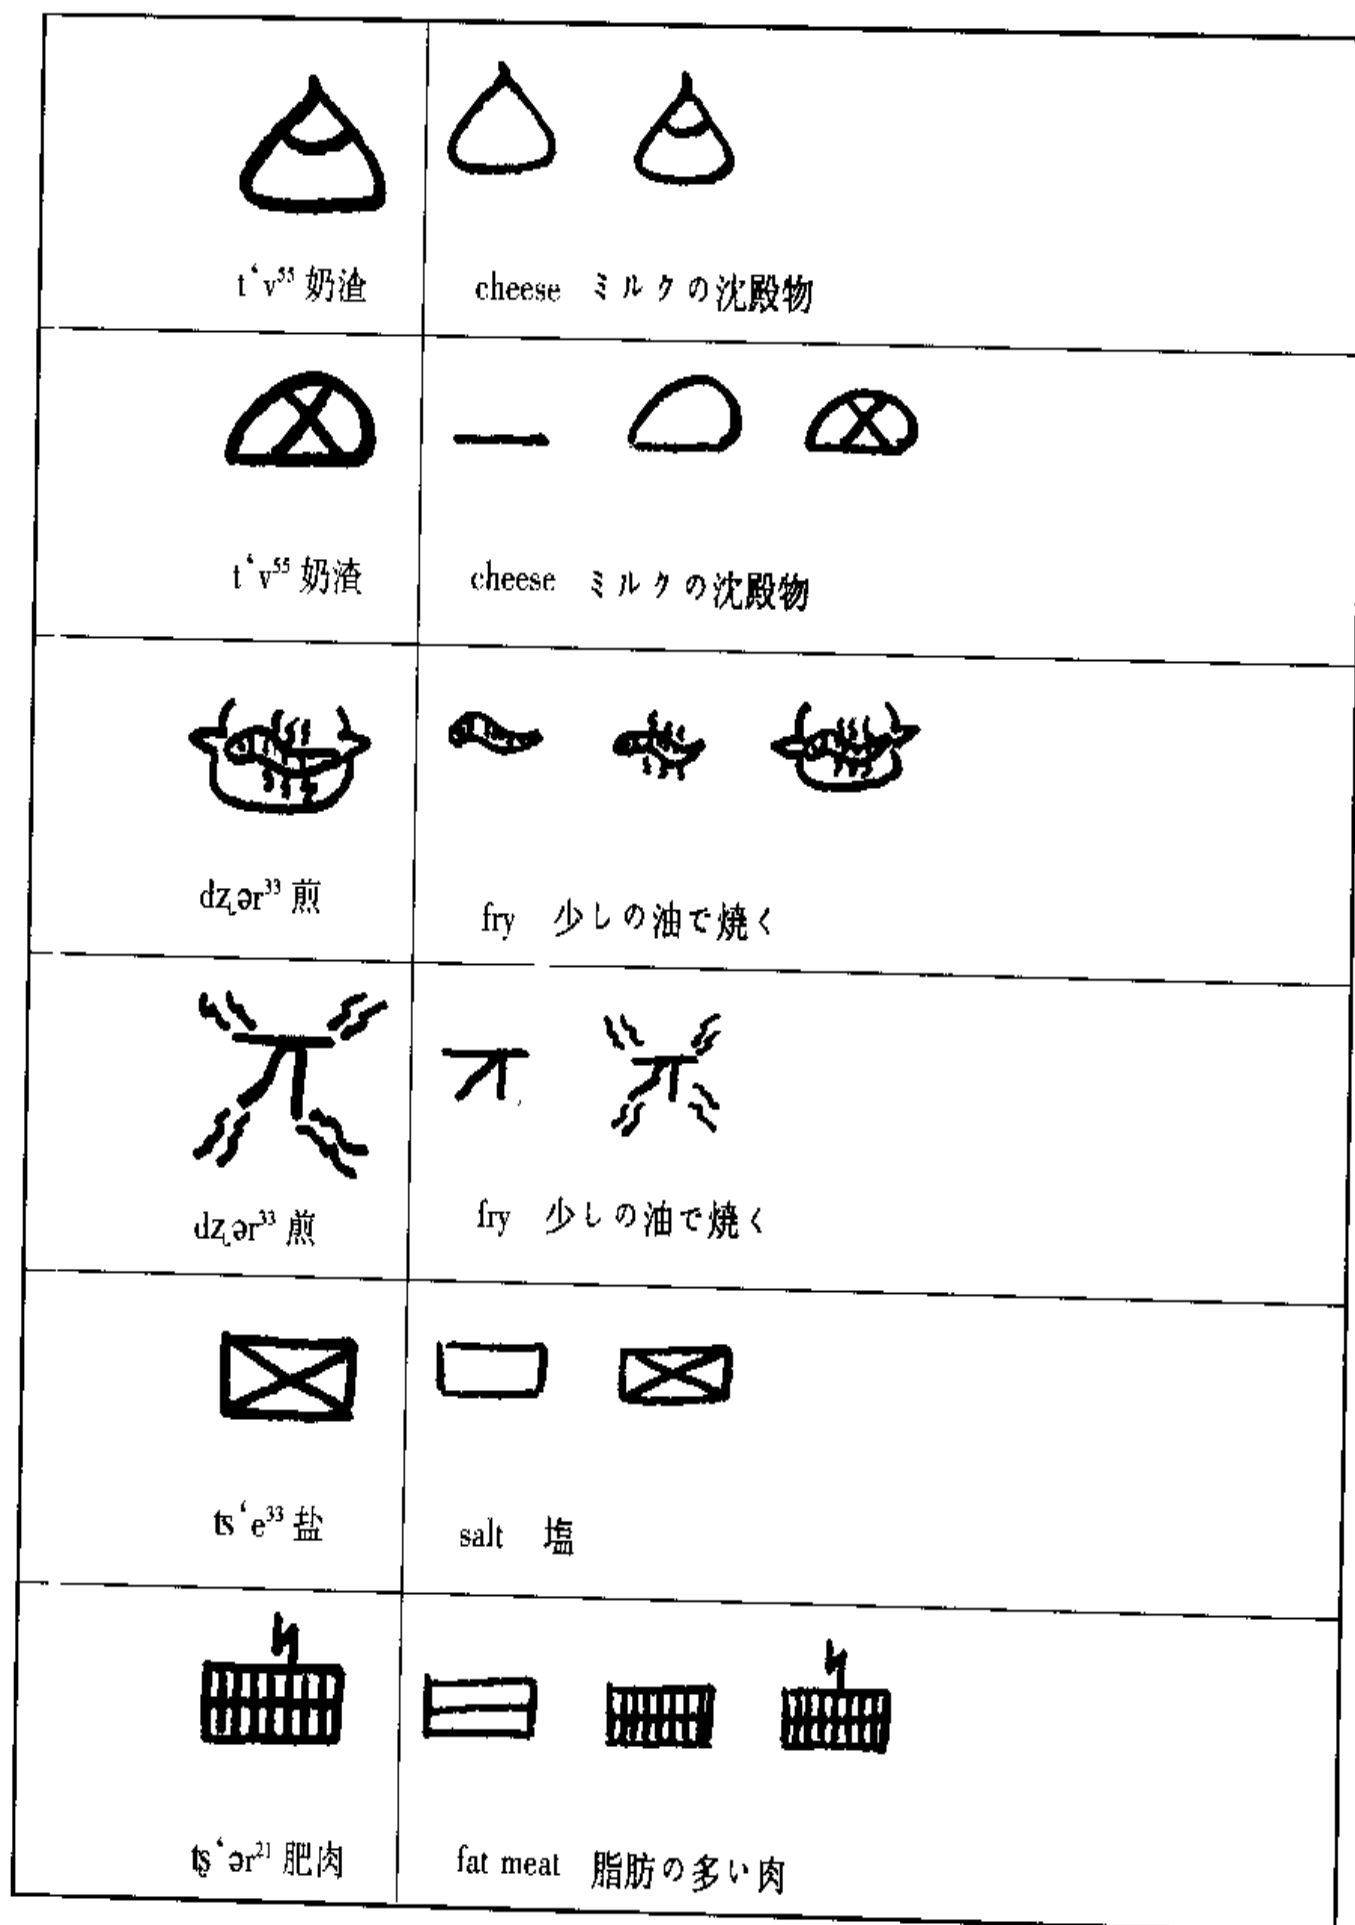 t‘v⁵⁵ 奶渣
cheese ミルクの沈殿物
t‘v⁵⁵ 奶渣
cheese ミルクの沈殿物
dʐər³³ 煎
fry 少しの油で焼く
dʐər³³ 煎
fry 少しの油で焼く
ts‘e³³ 盐
salt 塩
tʂ‘ər²¹ 肥肉
fat meat 脂肪の多い肉